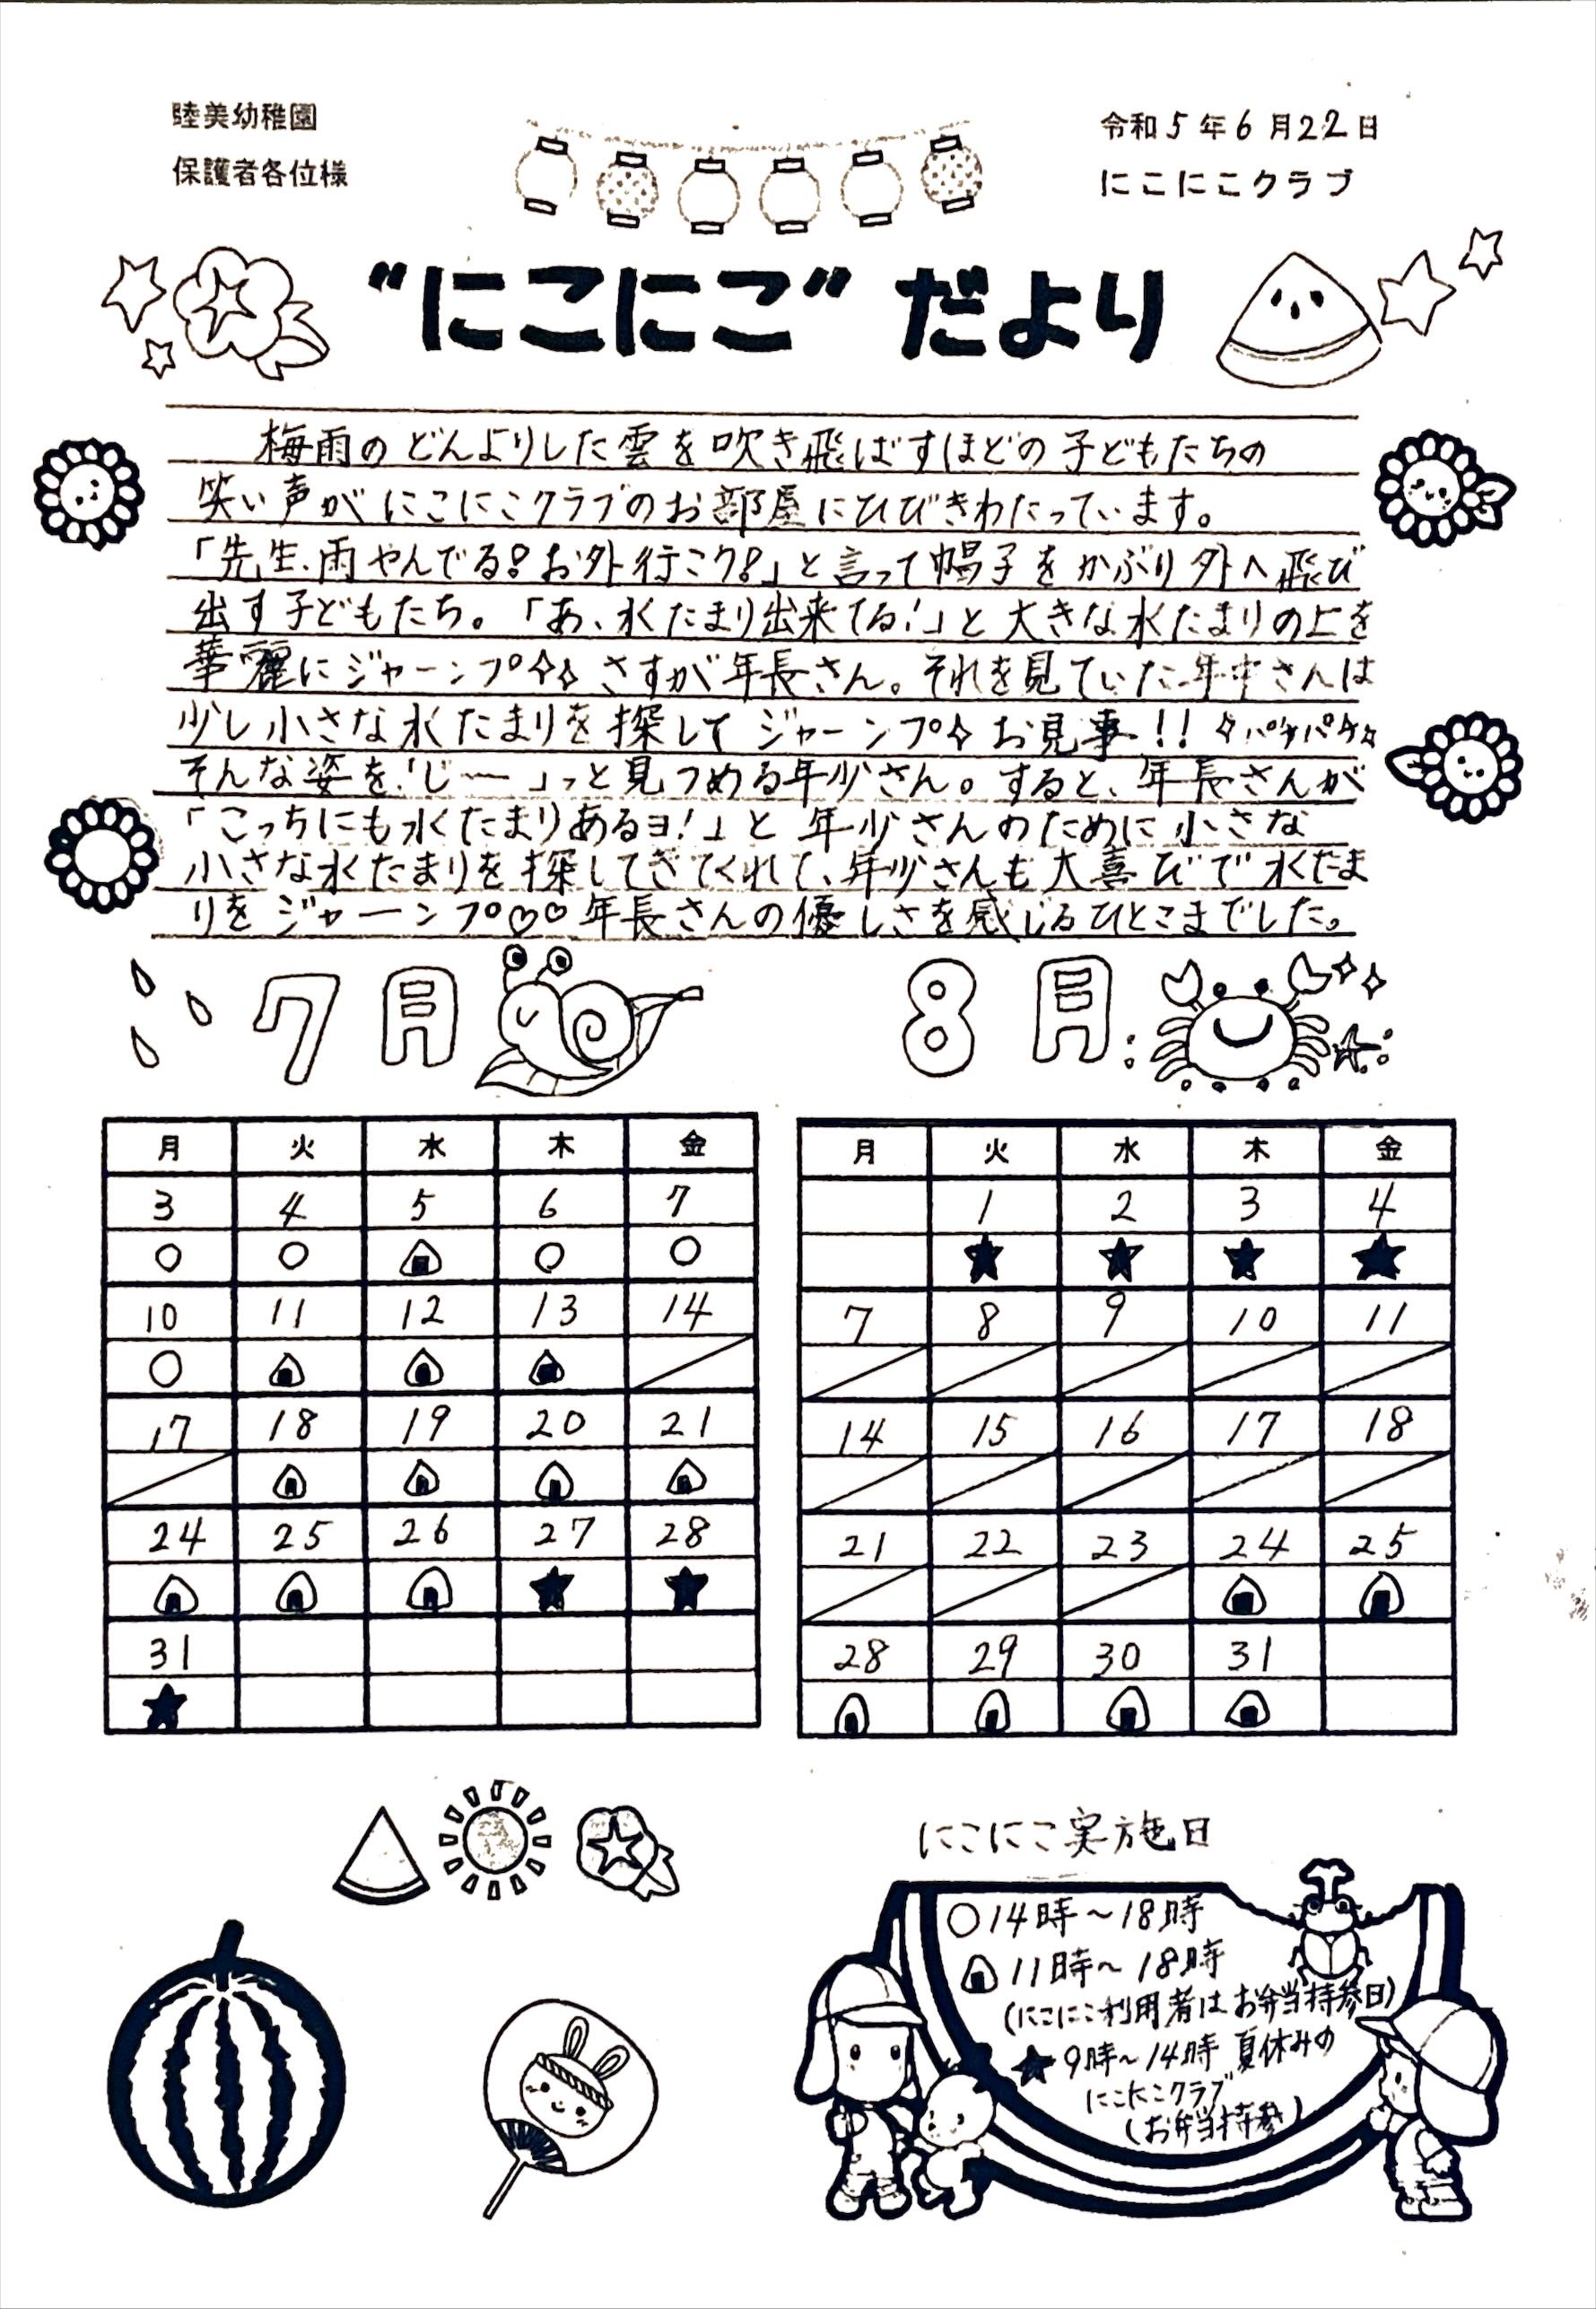 睦美幼稚園
保護者各位様
令和5年6月22日
にこにこクラブ
"にこにこ"だより
梅雨のどんよりした雲を吹き飛ばすほどの子どもたちの
笑い声がにこにこクラブのお部屋にひびきわたっています。
「先生、雨やんでる!お外行こう!」と言って帽子をかぶり外へ飛び
出す子どもたち。「あ、水たまり出来てる!」と大きな水たまりの上を
華麗にジャーンプ☆☆さすが年長さん。それを見ていた年中さんは
少し小さな水たまりを探してジャーンプ☆お見事!!☆パチパチ☆
そんな姿を「じー」っと見つめる年少さん。すると、年長さんが
「こっちにも水たまりあるヨ!」と年少さんのために小さな
小さな水たまりを探してきてくれて、年少さんも大喜びで水たま
りをジャーンプ♡♡年長さんの優しさを感じるひとこまでした。
7月
8月
月 火 水 木 金
3 4 5 6 7
○ ○ 🍙 ○ ○
10 11 12 13 14
○ 🍙 🍙 🍙 /
17 18 19 20 21
/ 🍙 🍙 🍙 🍙
24 25 26 27 28
🍙 🍙 🍙 ★ ★
31
★
月 火 水 木 金
1 2 3 4
★ ★ ★ ★
7 8 9 10 11
/ / / / /
14 15 16 17 18
/ / / / /
21 22 23 24 25
/ / / 🍙 🍙
28 29 30 31
🍙 🍙 🍙 🍙
にこにこ実施日
○14時~18時
🍙11時~18時
(にこにこ利用者はお弁当持参日)
★9時~14時 夏休みの
にこにこクラブ
(お弁当持参)